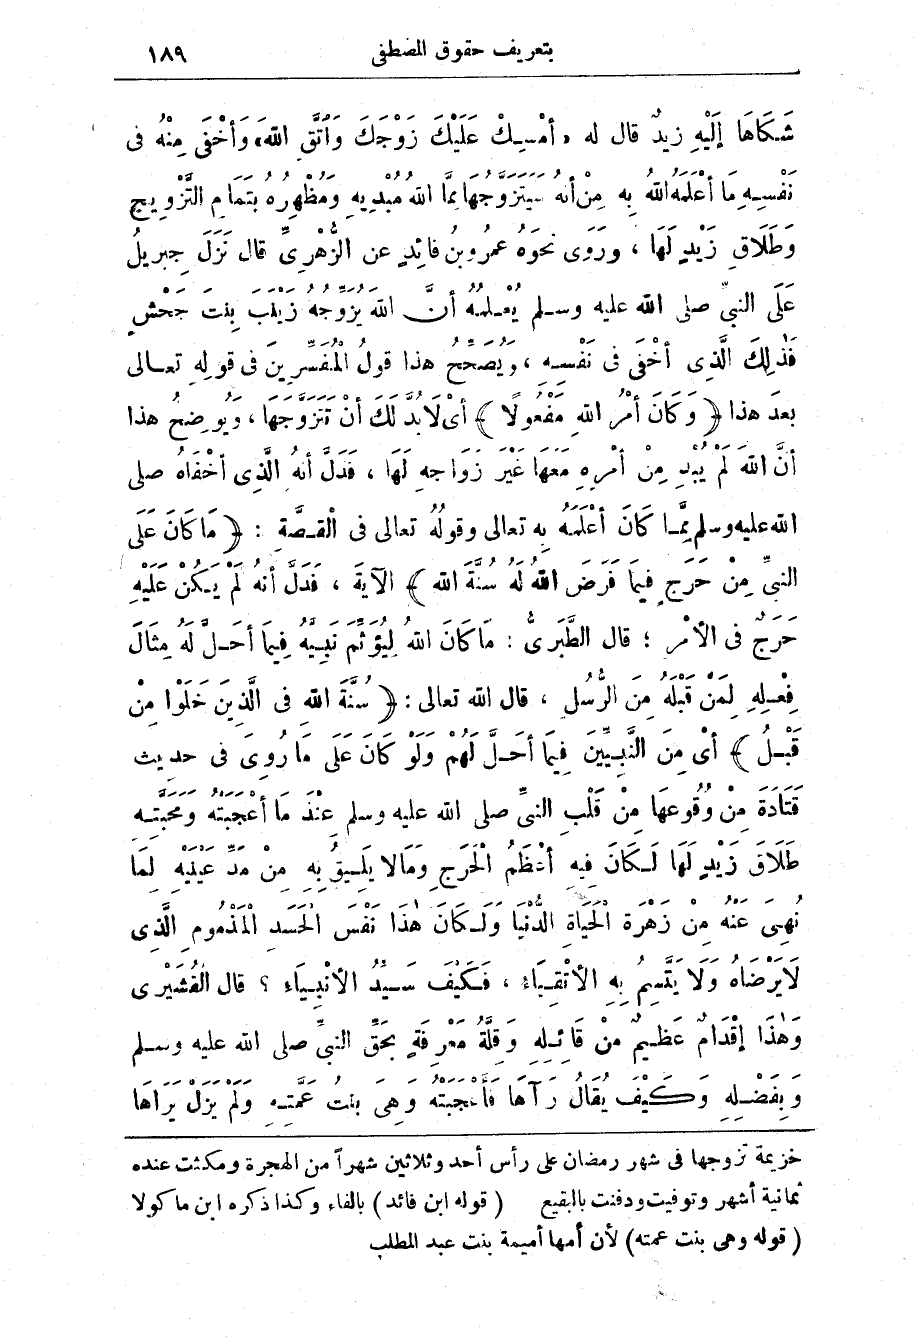 بتعريف حقوق المصطفى ١٨٩
شَكَاهَا إِلَيْهِ زيدٌ قال له «أَمْسِكْ عَلَيْكَ زَوْجَكَ وَاتَّقِ اللهَ» وَأَخْفَى مِنْهُ فى
نَفْسِهِ مَا أَعْلَمَهُ اللهُ بِهِ مِنْ أنهُ سَيَتَزَوَّجُهَا مِمَّا اللهُ مُبْدِيهِ وَمُظْهِرُهُ بِتَمَامِ التَّزْوِيجِ
وَطَلَاقِ زَيْدٍ لَهَا ، ورَوَى نحوَهُ عمرُو بنُ فائِدٍ عن الزُّهْرِىِّ قال نَزَلَ جبريلُ
عَلَى النبىِّ صلى الله عليه وسلم يُعْلِمُهُ أَنَّ اللهَ يُزَوِّجُهُ زَيْنَبَ بِنْتَ جَحْشٍ
فَذٰلِكَ الَّذِى أَخْفَى فى نَفْسِهِ ، وَيُصَحِّحُ هذا قولُ الْمُفَسِّرِينَ فى قولِهِ تعالى
بعدَ هذا ﴿ وَكَانَ أَمْرُ اللهِ مَفْعُولًا ﴾ أىْ لَابُدَّ لَكَ أَنْ تَتَزَوَّجَهَا ، وَيُوضِحُ هذا
أنَّ اللهَ لَمْ يُبْدِ مِنْ أَمْرِهِ مَعَهَا غَيْرَ زَوَاجِهِ لَهَا ، فَدَلَّ أنهُ الَّذِى أَخْفَاهُ صلى
الله عليه وسلم مِمَّا كَانَ أَعْلَمَهُ بِهِ تعالى وقولُهُ تعالى فى الْقِصَّةِ : ﴿ مَا كَانَ عَلَى
النبىِّ مِنْ حَرَجٍ فِيمَا فَرَضَ اللهُ لَهُ سُنَّةَ اللهِ ﴾ الآيةَ ، فَدَلَّ أنهُ لَمْ يَكُنْ عَلَيْهِ
حَرَجٌ فى الأَمْرِ ؛ قال الطَّبَرِىُّ : مَا كَانَ اللهُ لِيُؤَثِّمَ نَبِيَّهُ فِيمَا أَحَلَّ لَهُ مِثَالَ
فِعْلِهِ لِمَنْ قَبْلَهُ مِنَ الرُّسُلِ ، قال الله تعالى : ﴿ سُنَّةَ اللهِ فى الَّذِينَ خَلَوْا مِنْ
قَبْلُ ﴾ أىْ مِنَ النَّبِيِّينَ فِيمَا أَحَلَّ لَهُمْ وَلَوْ كَانَ عَلَى مَا رُوِىَ فى حديث
قَتَادَةَ مِنْ وُقُوعِهَا مِنْ قَلْبِ النبىِّ صلى الله عليه وسلم عِنْدَ مَا أَعْجَبَتْهُ وَمَحَبَّتِهِ
طَلَاقَ زَيْدٍ لَهَا لَكَانَ فِيهِ أَعْظَمُ الْحَرَجِ وَمَالَا يَلِيقُ بِهِ مِنْ مَدِّ عَيْنَيْهِ لِمَا
نُهِىَ عَنْهُ مِنْ زَهْرَةِ الْحَيَاةِ الدُّنْيَا وَلَكَانَ هٰذَا نَفْسَ الْحَسَدِ الْمَذْمُومِ الَّذِى
لَا يَرْضَاهُ وَلَا يَتَّسِمُ بِهِ الأَتْقِيَاءُ ، فَكَيْفَ سَيِّدُ الأَنْبِيَاءِ ؟ قال الْقُشَيْرِى
وَهٰذَا إِقْدَامٌ عَظِيمٌ مِنْ قَائِلِهِ وَقِلَّةُ مَعْرِفَةٍ بِحَقِّ النبىِّ صلى الله عليه وسلم
وَبِفَضْلِهِ وَكَيْفَ يُقَالُ رَآهَا فَأَعْجَبَتْهُ وَهِىَ بِنتُ عَمَّتِهِ وَلَمْ يَزَلْ يَرَاهَا
خزيمة تزوجها فى شهر رمضان على رأس أحد وثلاثين شهراً من الهجرة ومكثت عنده
ثمانية أشهر وتوفيت ودفنت بالبقيع ( قوله ابن فائد ) بالفاء وكذا ذكره ابن ماكولا
( قوله وهى بنت عمته ) لأن أمها أميمة بنت عبد المطلب